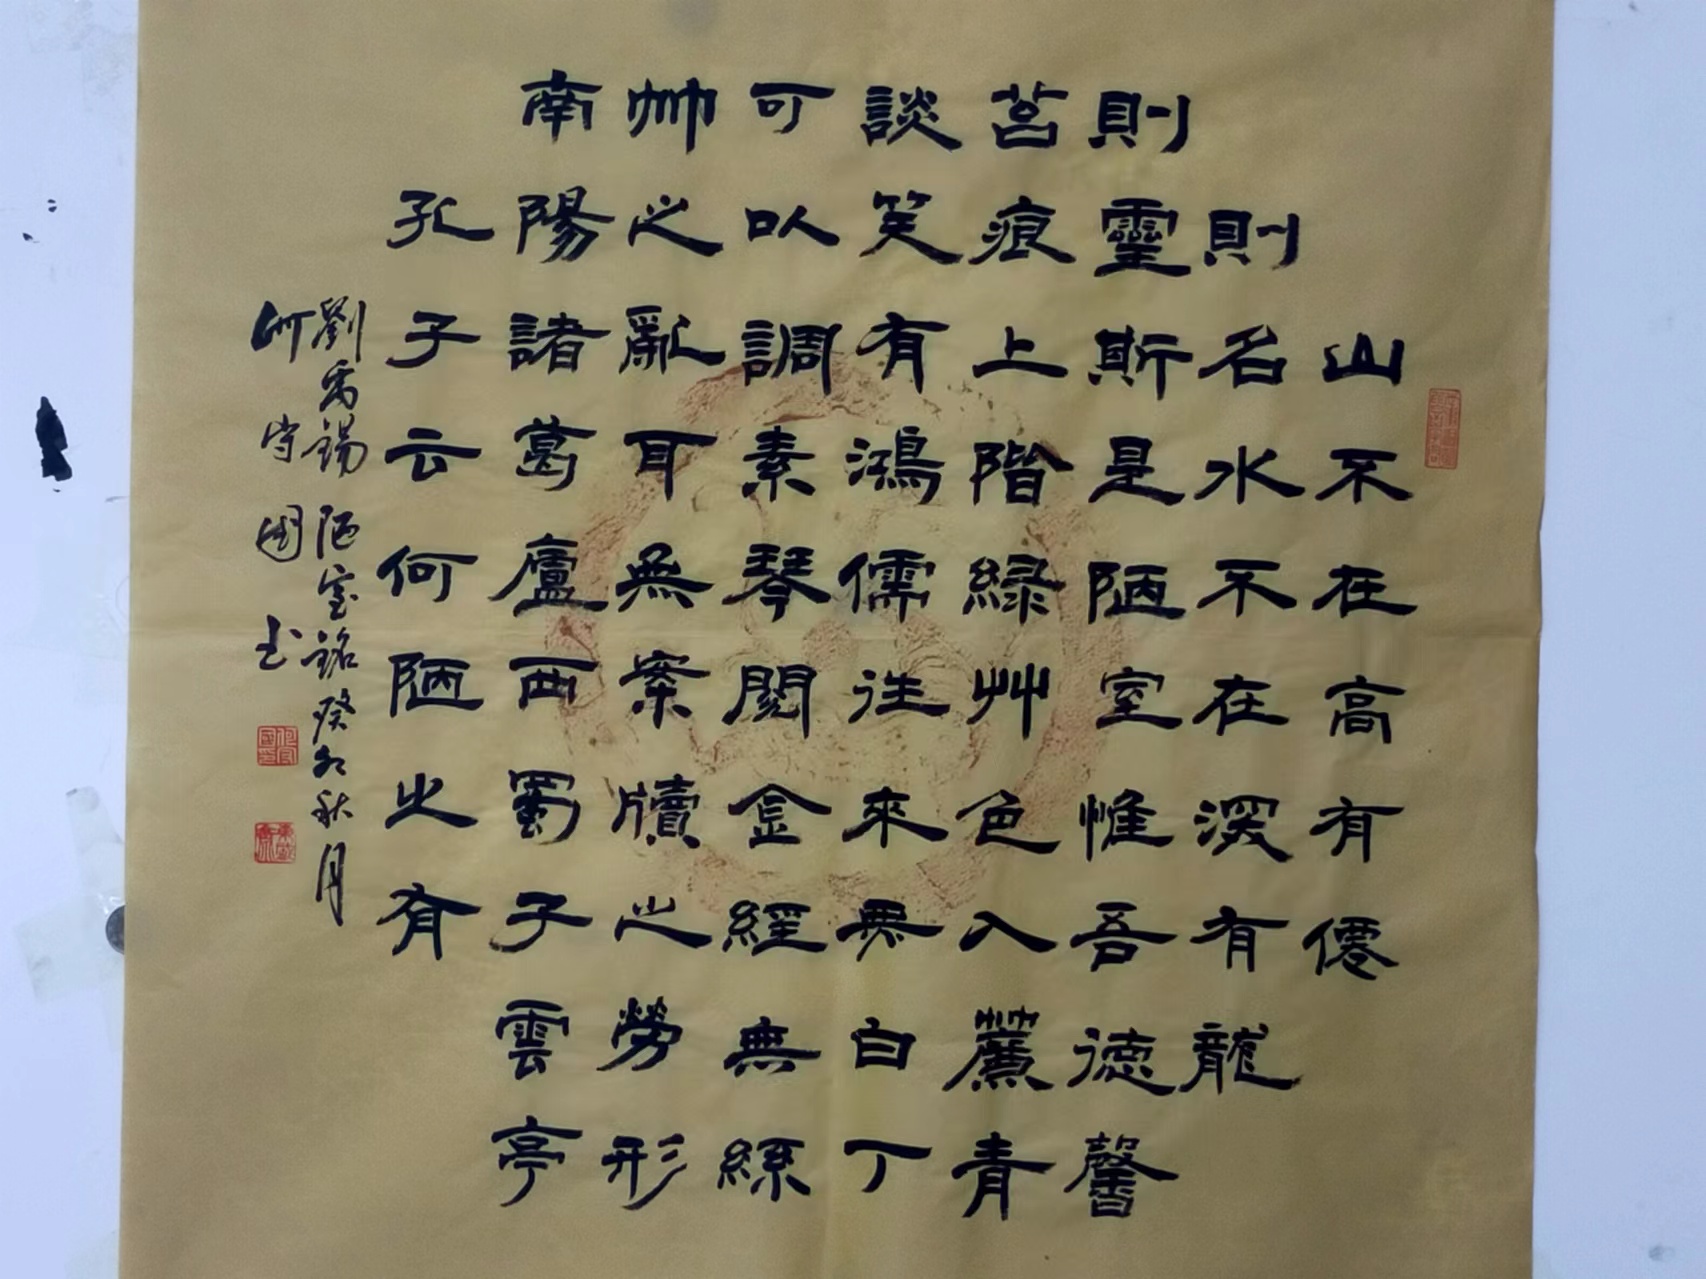 山不在高有僊
則名水不在深有龍
則靈斯是陋室惟吾德馨
苔痕上階緑艸色入薕青
談笑有鴻儒往來無白丁
可以調素琴閲金經無絲
竹之亂耳無案牘之勞形
南陽諸葛廬西蜀子雲亭
孔子云何陋之有
劉禹錫陋室銘癸卯秋月
何守國书